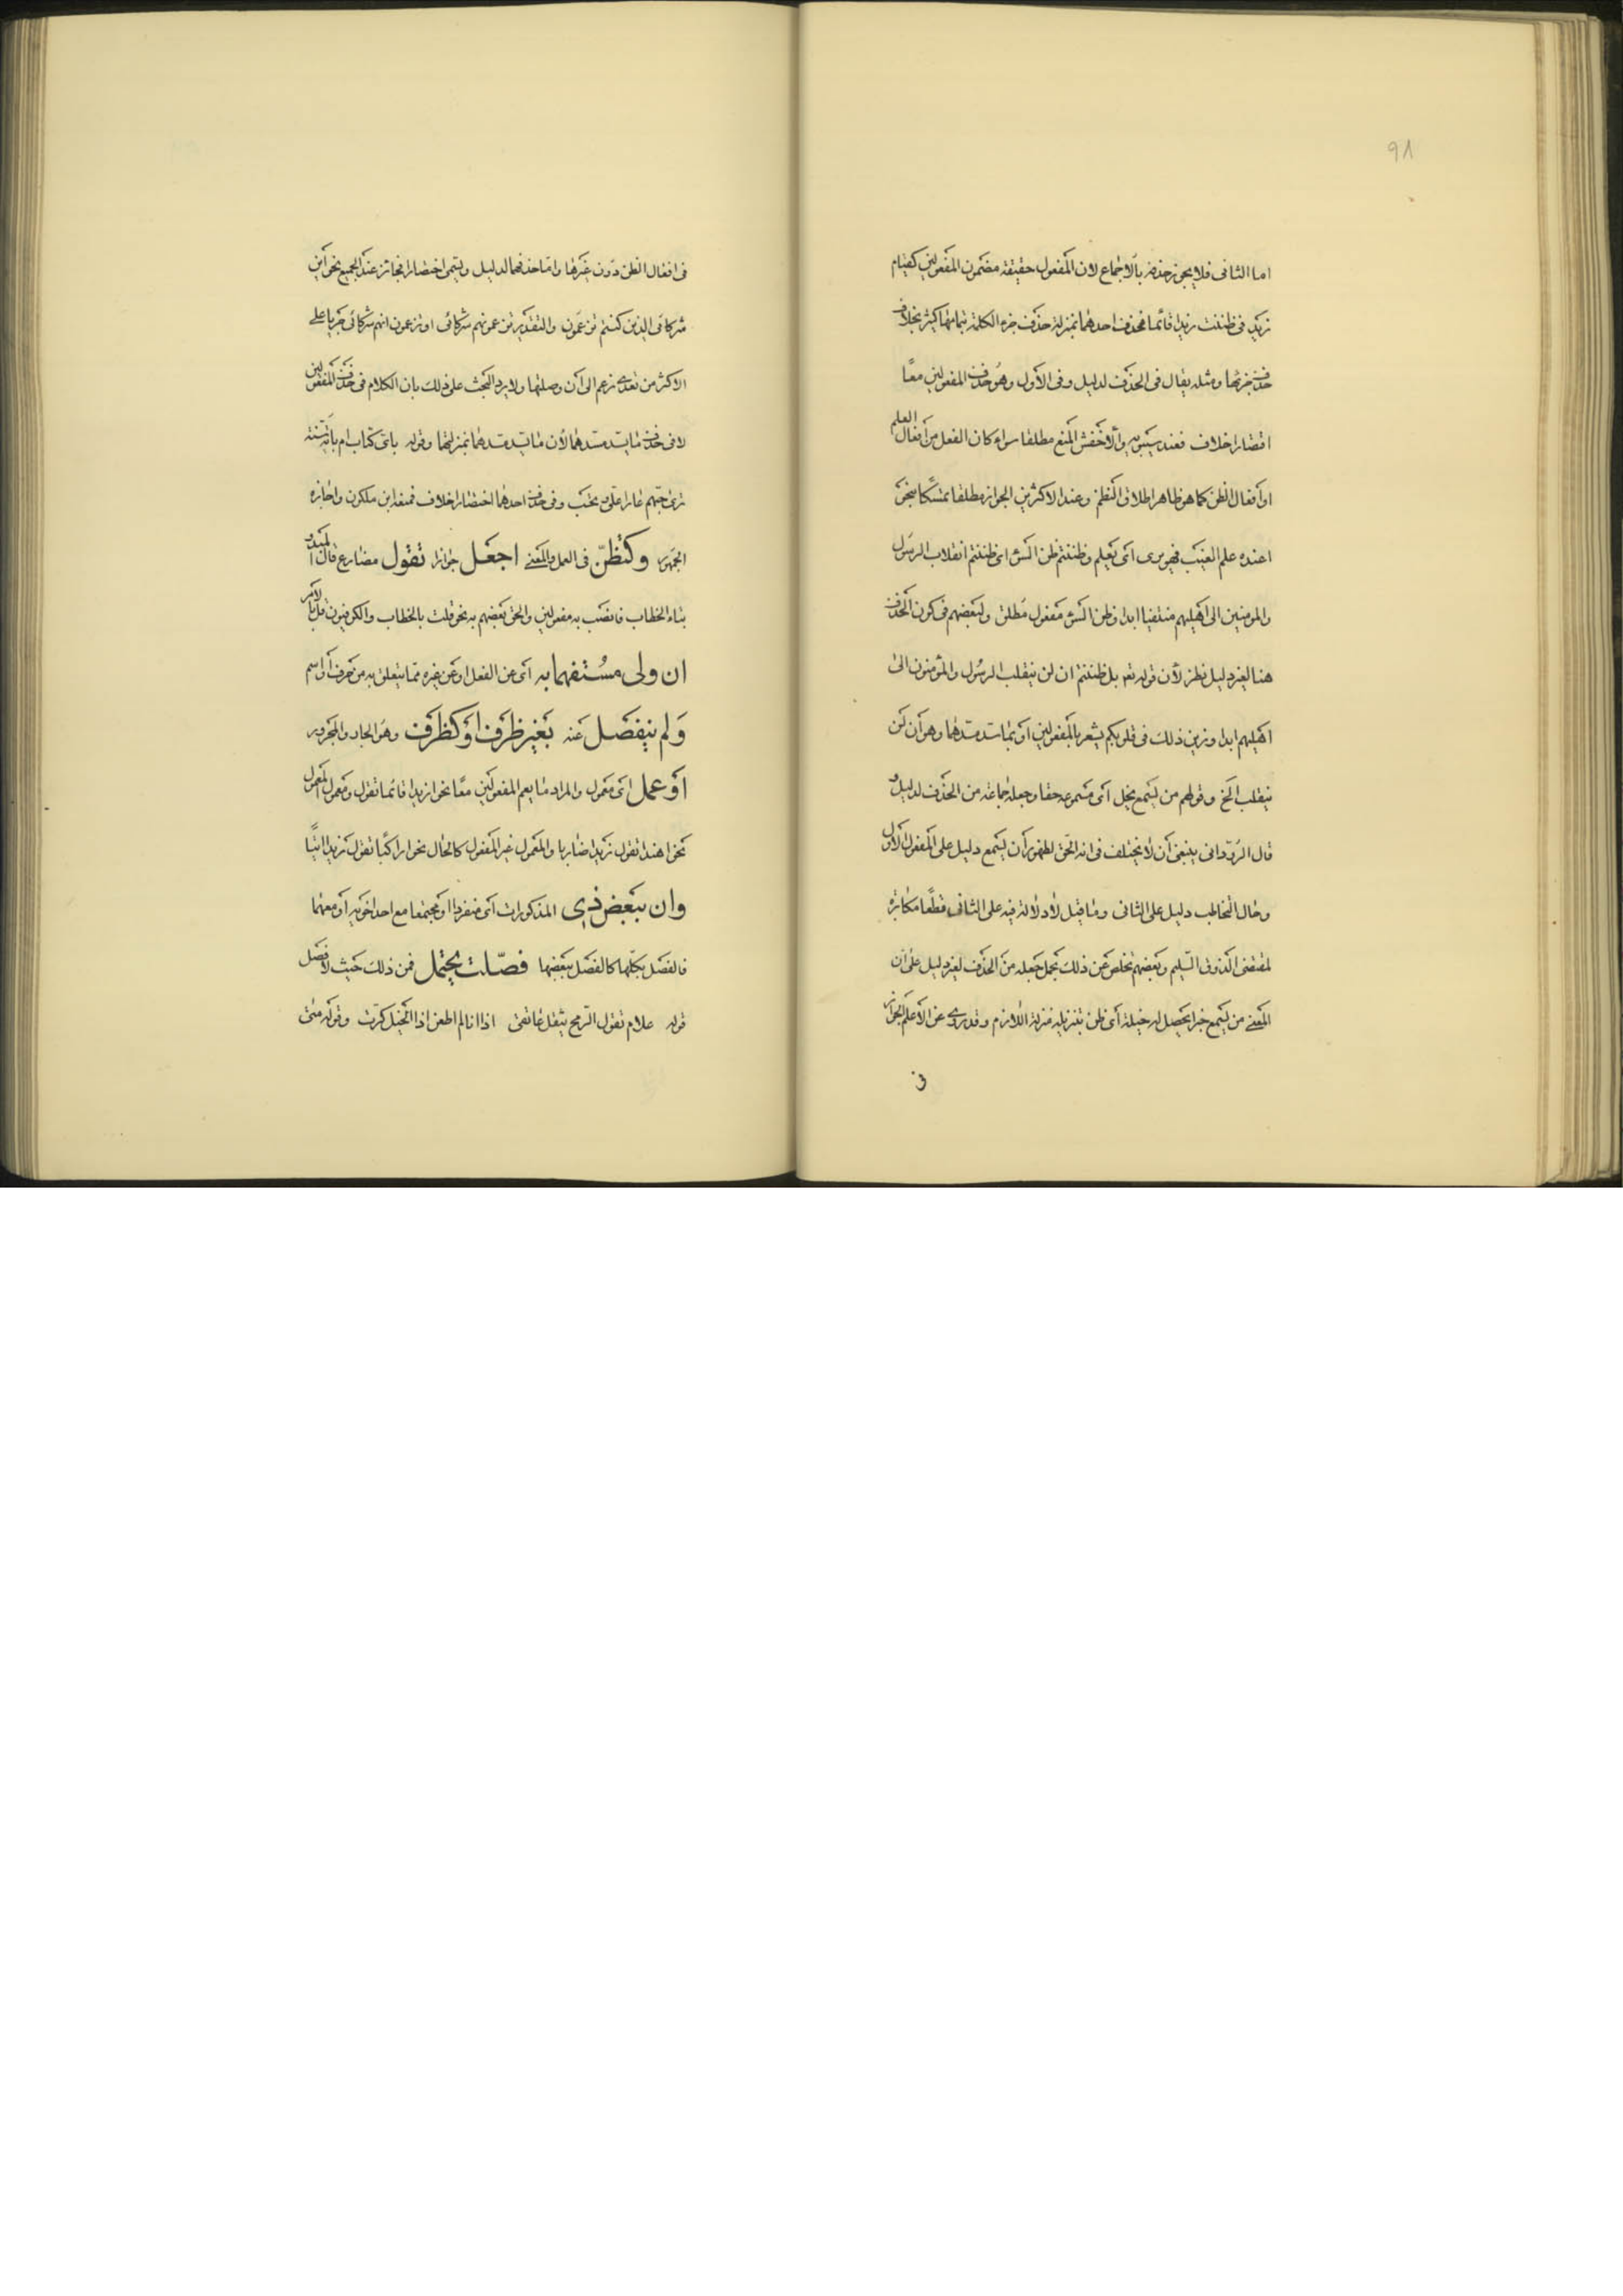 ٩٨
اما الثانى فلا يجوز حذفه بالاجماع لان المفعول حقيقة مضمون المفعولين كقيام
زيد فى ظننت زيدا قائما فحذف احدهما بمنزلة حذف جزء الكلمة بتمامها كثير بخلاف
حذف جزئها ومثله يقال فى الحذف لدليل وفى الأول وهو حذف المفعولين معًا
اقتصارا خلاف فعند سيبويه والأخفش المنع مطلقا سواء كان الفعل من أفعال العلم
او أفعال الظن كما هو ظاهر اطلاق النظم وعند الاكثرين الجواز مطلقا تمسّكا بنحو
اعنده علم الغيب فهو يرى اى يعلم وظننتم ظن السَّوء اى ظننتم انقلاب الرسول
والمومنين الى اهليهم منتفيا ابدا وظن السوء مفعول مطلق ولبعضهم فى كون الحذف
هنا لغير دليل نظر لأن قوله تعا بل ظننتم ان لن ينقلب الرسول والمؤمنون الى
اهليهم ابدا وزين ذلك فى قلوبكم يشعر بالمفعولين او بما سد مسدهما وهو أن لن
ينقلب الخ وقولهم من يسمع يخل اى مسموعه حقا وجعله جماعة من الحذف لدليل و
قال الرودانى ينبغى أن لا يختلف فى انه الحق لظهور أن يسمع دليل على المفعول الأول
وحال التخاطب دليل على الثانى وما قيل لا دلالة فيه على الثانى قطعًا مكابرة
لمقتضى الذوق السليم وبعضهم تخلص عن ذلك بحمل جعله من الحذف لغير دليل على ان
المعنى من يسمع خبرا يحصل له خيلة أى ظن بتنزيله منزلة اللازم وقد روى عن الأعلم الجواز
فى
فى افعال الظن دون غيرها واما حذفهما لدليل ويسمى اختصارا فجائز عند الجميع نحو اين
شركائى الذين كنتم تزعمون والتقدير تزعمونهم شركائى او تزعمون انهم شركائى جريا على
الاكثر من تعدى زعم الى أن وصلتها ولا يرد البحث على ذلك بان الكلام فى حذف المفعولين
لا فى حذف ما يسد مسدهما لأن ما يسد مسدهما بمنزلتهما وقوله باى كتاب ام بأية سنة
ترى حبهم عارا علىّ وتحسب وفى حذف احدهما اختصارا خلاف فمنعه ابن ملكون واجازه
الجمهور وكتظنّ فى العمل والمعنى اجعل جوازا تقول مضارع قال المبدو
بتاء الخطاب فانصب به مفعولين والحق بعضهم به نحو قلت بالخطاب والكوفيون قل بالأمر
ان ولى مستفهما به اى عن الفعل او عن غيره مما يتعلق به من حرف أو اسم
ولم ينفصل عنه بغير ظرف أو كظرف وهو الجار والمجرور
أو عمل اى معمول والمراد ما يعم المفعولين معًا نحو ازيدا قائما تقول ومعمول المعمول
نحو اهندا تقول زيدا ضاربا والمعمول غير المفعول كالحال نحو اراكبًا تقول زيدا اتيًا
وان ببعض ذى المذكورات اى منفردا او مجتمعا مع احد اخويه أو معهما
فالفصل بكلها كالفصل ببعضها فصلت يحتمل فمن ذلك حيث لا فصل
قوله علام تقول الرمح يثقل عاتقى اذا انا لم اطعن اذا الخيل كرت وقوله متى